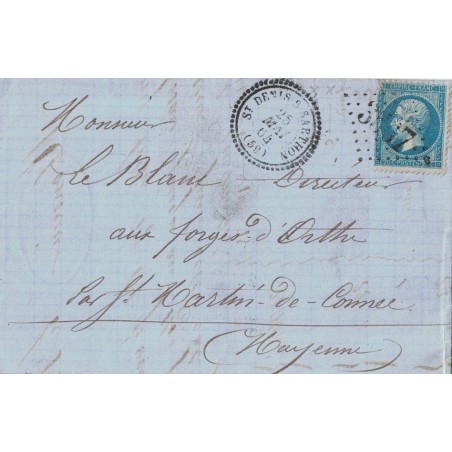 ST DENIS S SARTHON
25
MAI
(59)
EMPIRE FRANC
POSTES
Monsieur
Le Blanc Directeur
aux forges d'Orthe
par St Martin-de-Connée
(Mayenne)